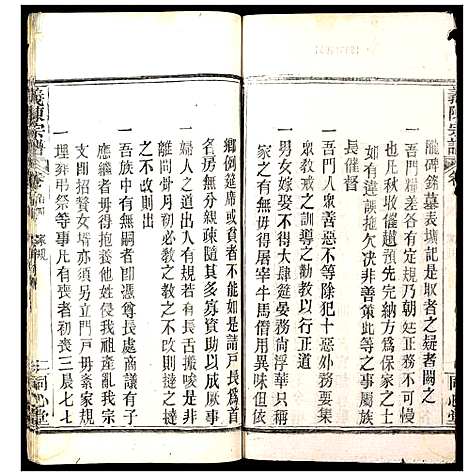 義陳宗譜
牒碑銘墓表壙記是取者之疑者闕之
一吾門糧差各有定規乃朝廷正務不可欺
也凡秋收催趲預先完納方爲保家之士
若有違誤拋欠決非善策此等之事屬族
長催督
一吾門人衆善惡不等除犯十惡外小過者
衆敎戒之訓導之勸敎以行正道
一男女嫁娶不得大肆筵宴務尚浮華其中
家之有無不得屠宰牛馬僭用異味但依
鄉例筵席或貧者不能如是請戸長爲首
名房無分親疎隨其多寡資助以成其事
一婦人之道出人有規若有長舌振唆
離間骨月初必教之教之不改則撻之撻
之不改則出
一吾族有無嗣者卽憑尊長處商議有子
應繼者毋得抱養他姓爲我祖產亂我宗
文卽招贅女壻亦須另立門戸毋紊家規
一埋葬弔祭等事凡有喪者初喪三晨七七
義陳宗譜
卷
家規
三
同心堂
同心堂